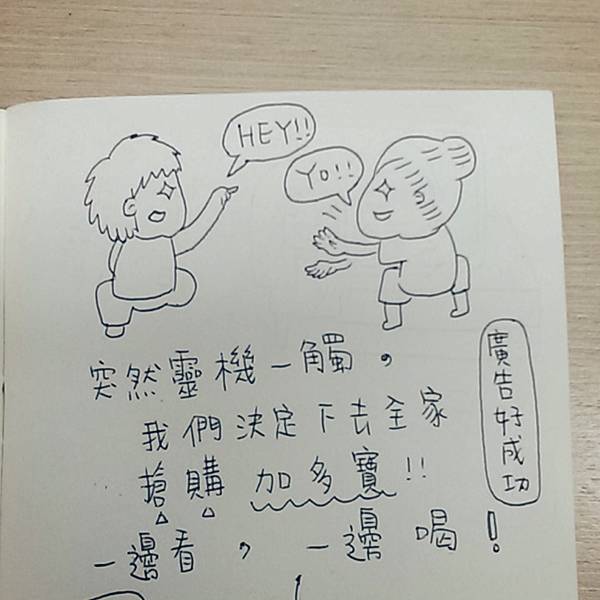 HEY!!
Yo!!
突然靈機一觸，
我們決定下去全家
搶購加多寶!!
一邊看，一邊喝!
廣告好成功